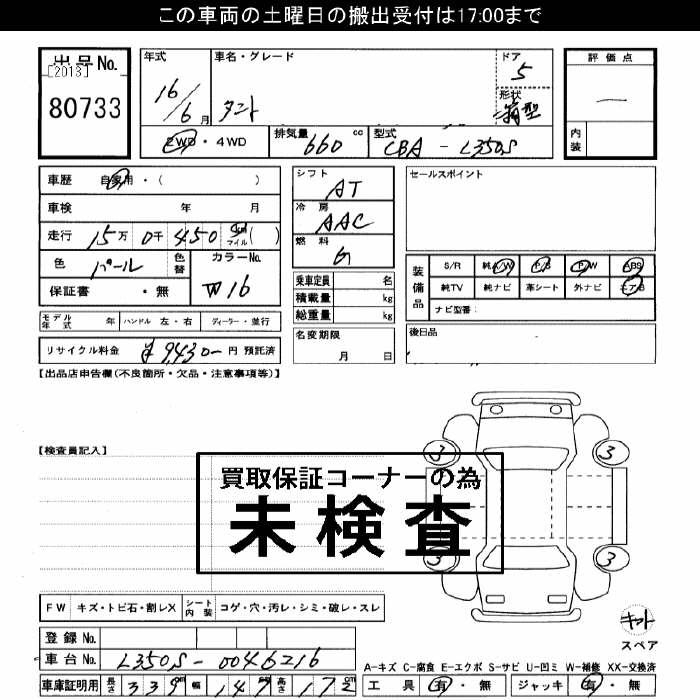 この車両の土曜日の搬出受付は17:00まで
出品No.
[2013]
80733
年式
16/6月
車名・グレード
タント
ドア
5
形状
箱型
評価点
—
内装
2WD・4WD
排気量 660 cc
型式 CBA - L350S
車歴 自家用・( )
車検 年 月
走行 15万 0千 450 Km マイル ( )
色 パール
色替
カラーNo. W16
保証書 ・無
シフト AT
冷房 AAC
燃料 G
乗車定員 名
積載量 kg
総重量 kg
セールスポイント
装備品
S/R 純A/W P/S P/W ABS
純TV 純ナビ 革シート 外ナビ エアB
ナビ型番:
モデル年式 年 ハンドル 左・右 ディーラー・並行
名変期限 月 日
後日品
リサイクル料金 ¥9,430- 円 預託済
【出品店申告欄(不良箇所・欠品・注意事項等)】
【検査員記入】
買取保証コーナーの為
未検査
3 3
3 3
FW キズ・トビ石・割レX シート内装 コゲ・穴・汚レ・シミ・破レ・スレ
キット
スペア
登録No.
車台No. L350S-0046216
A-キズ C-腐食 E-エクボ S-サビ U-凹ミ W-補修 XX-交換済
車庫証明用 長さ 339 cm 幅 147 cm 高さ 172 cm
工具 有・無 ジャッキ 有・無